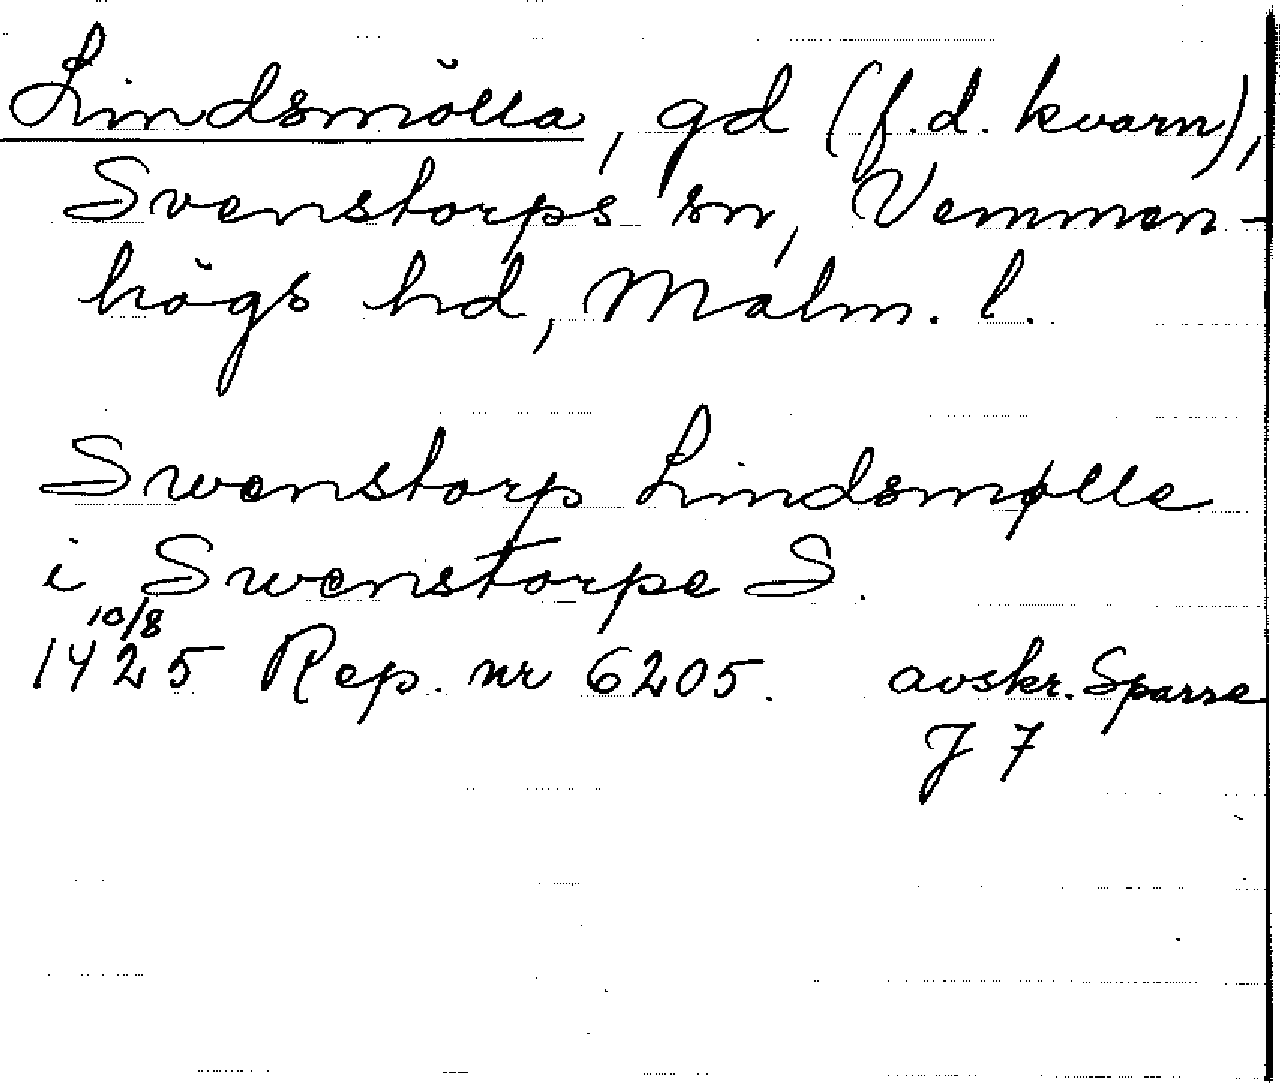 Lindsmölla, gd (f.d. kvarn),
Svenstorps sn, Vemmen-
högs hd, Malm. l.
Swenstorp Lindsmølle
i Swenstorpe S.
10/8
1425 Rep. nr 6205. avskr. Sparre
J 7